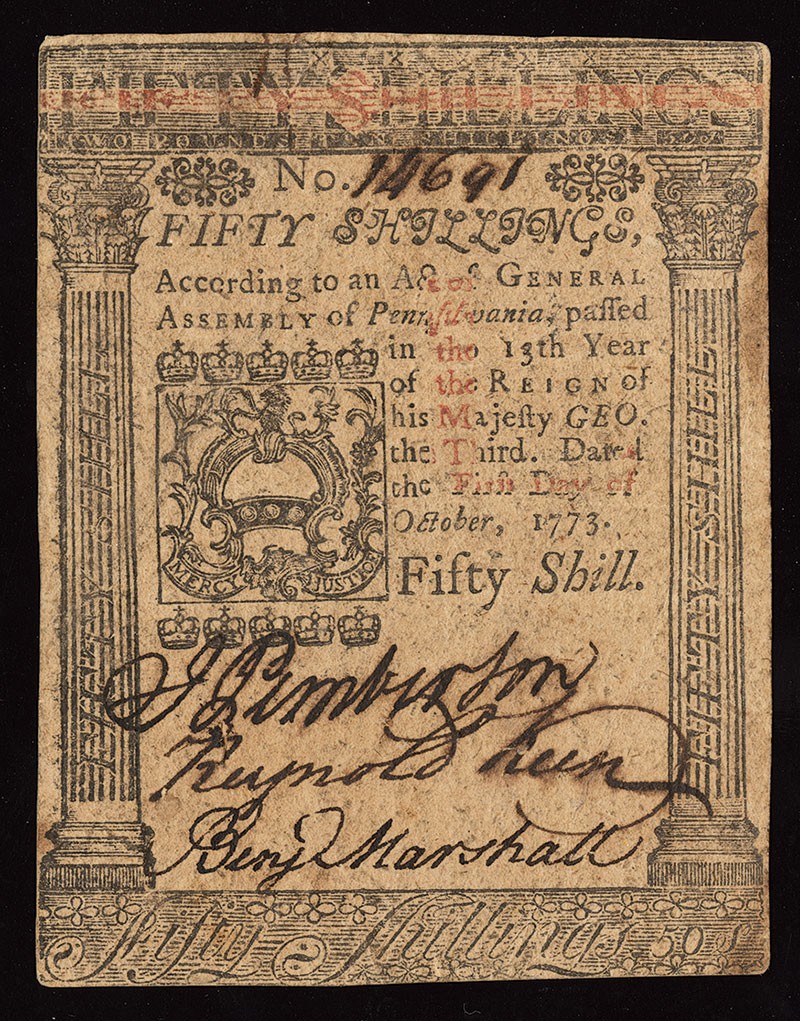 FIFTY SHILLINGS
TWO POUNDS TEN SHILLINGS
No. 14691
FIFTY SHILLINGS,
According to an Act of GENERAL
ASSEMBLY of Pennſylvania, paſſed
in the 13th Year
of the REIGN of
his Majeſty GEO.
the Third. Dated
the Firſt Day of
October, 1773.
MERCY JUSTICE
Fifty Shill.
J Pemberton
Reynold Keen
Benj Marshall
FIFTY SHILL
FIFTY SHILL
Fifty Shillings 50 s